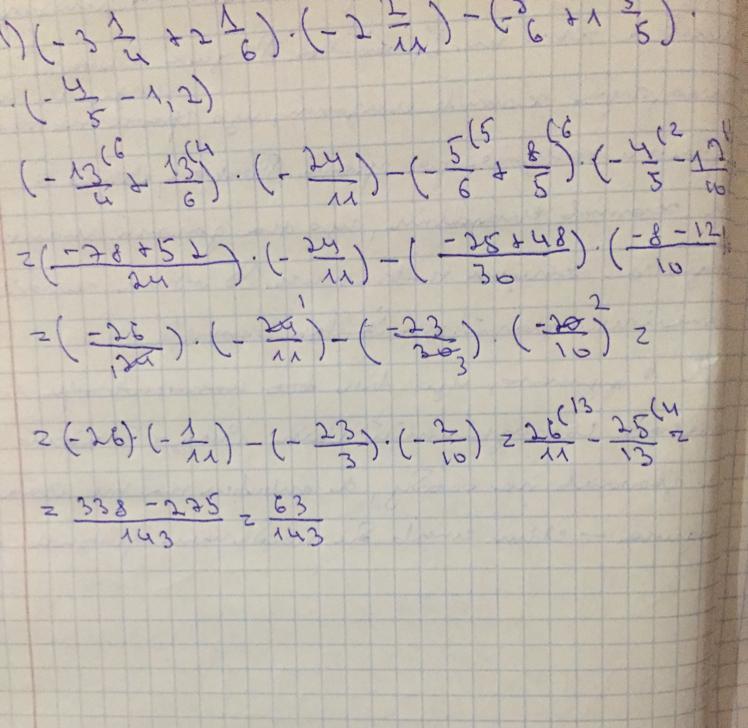 1) (-3 1/4 + 2 1/6) · (-2 2/11) - (-5/6 + 1 3/5) ·
· (-4/5 - 1,2)
(-13/4 (6 + 13/6 (4) · (-24/11) - (-5/6 (5 + 8/5 (6) · (-4/5 (2 - 12/10
= (-78+52/24) · (-24/11) - (-25+48/30) · (-8-12/10
= (-26/24) · (-24/11) 1 - (-23/30 3) · (-20/10) 2 =
= (-26) · (-1/11) - (-23/3) · (-2/10) = 26/11 (13 - 25/13 (4 =
= 338-275/143 = 63/143